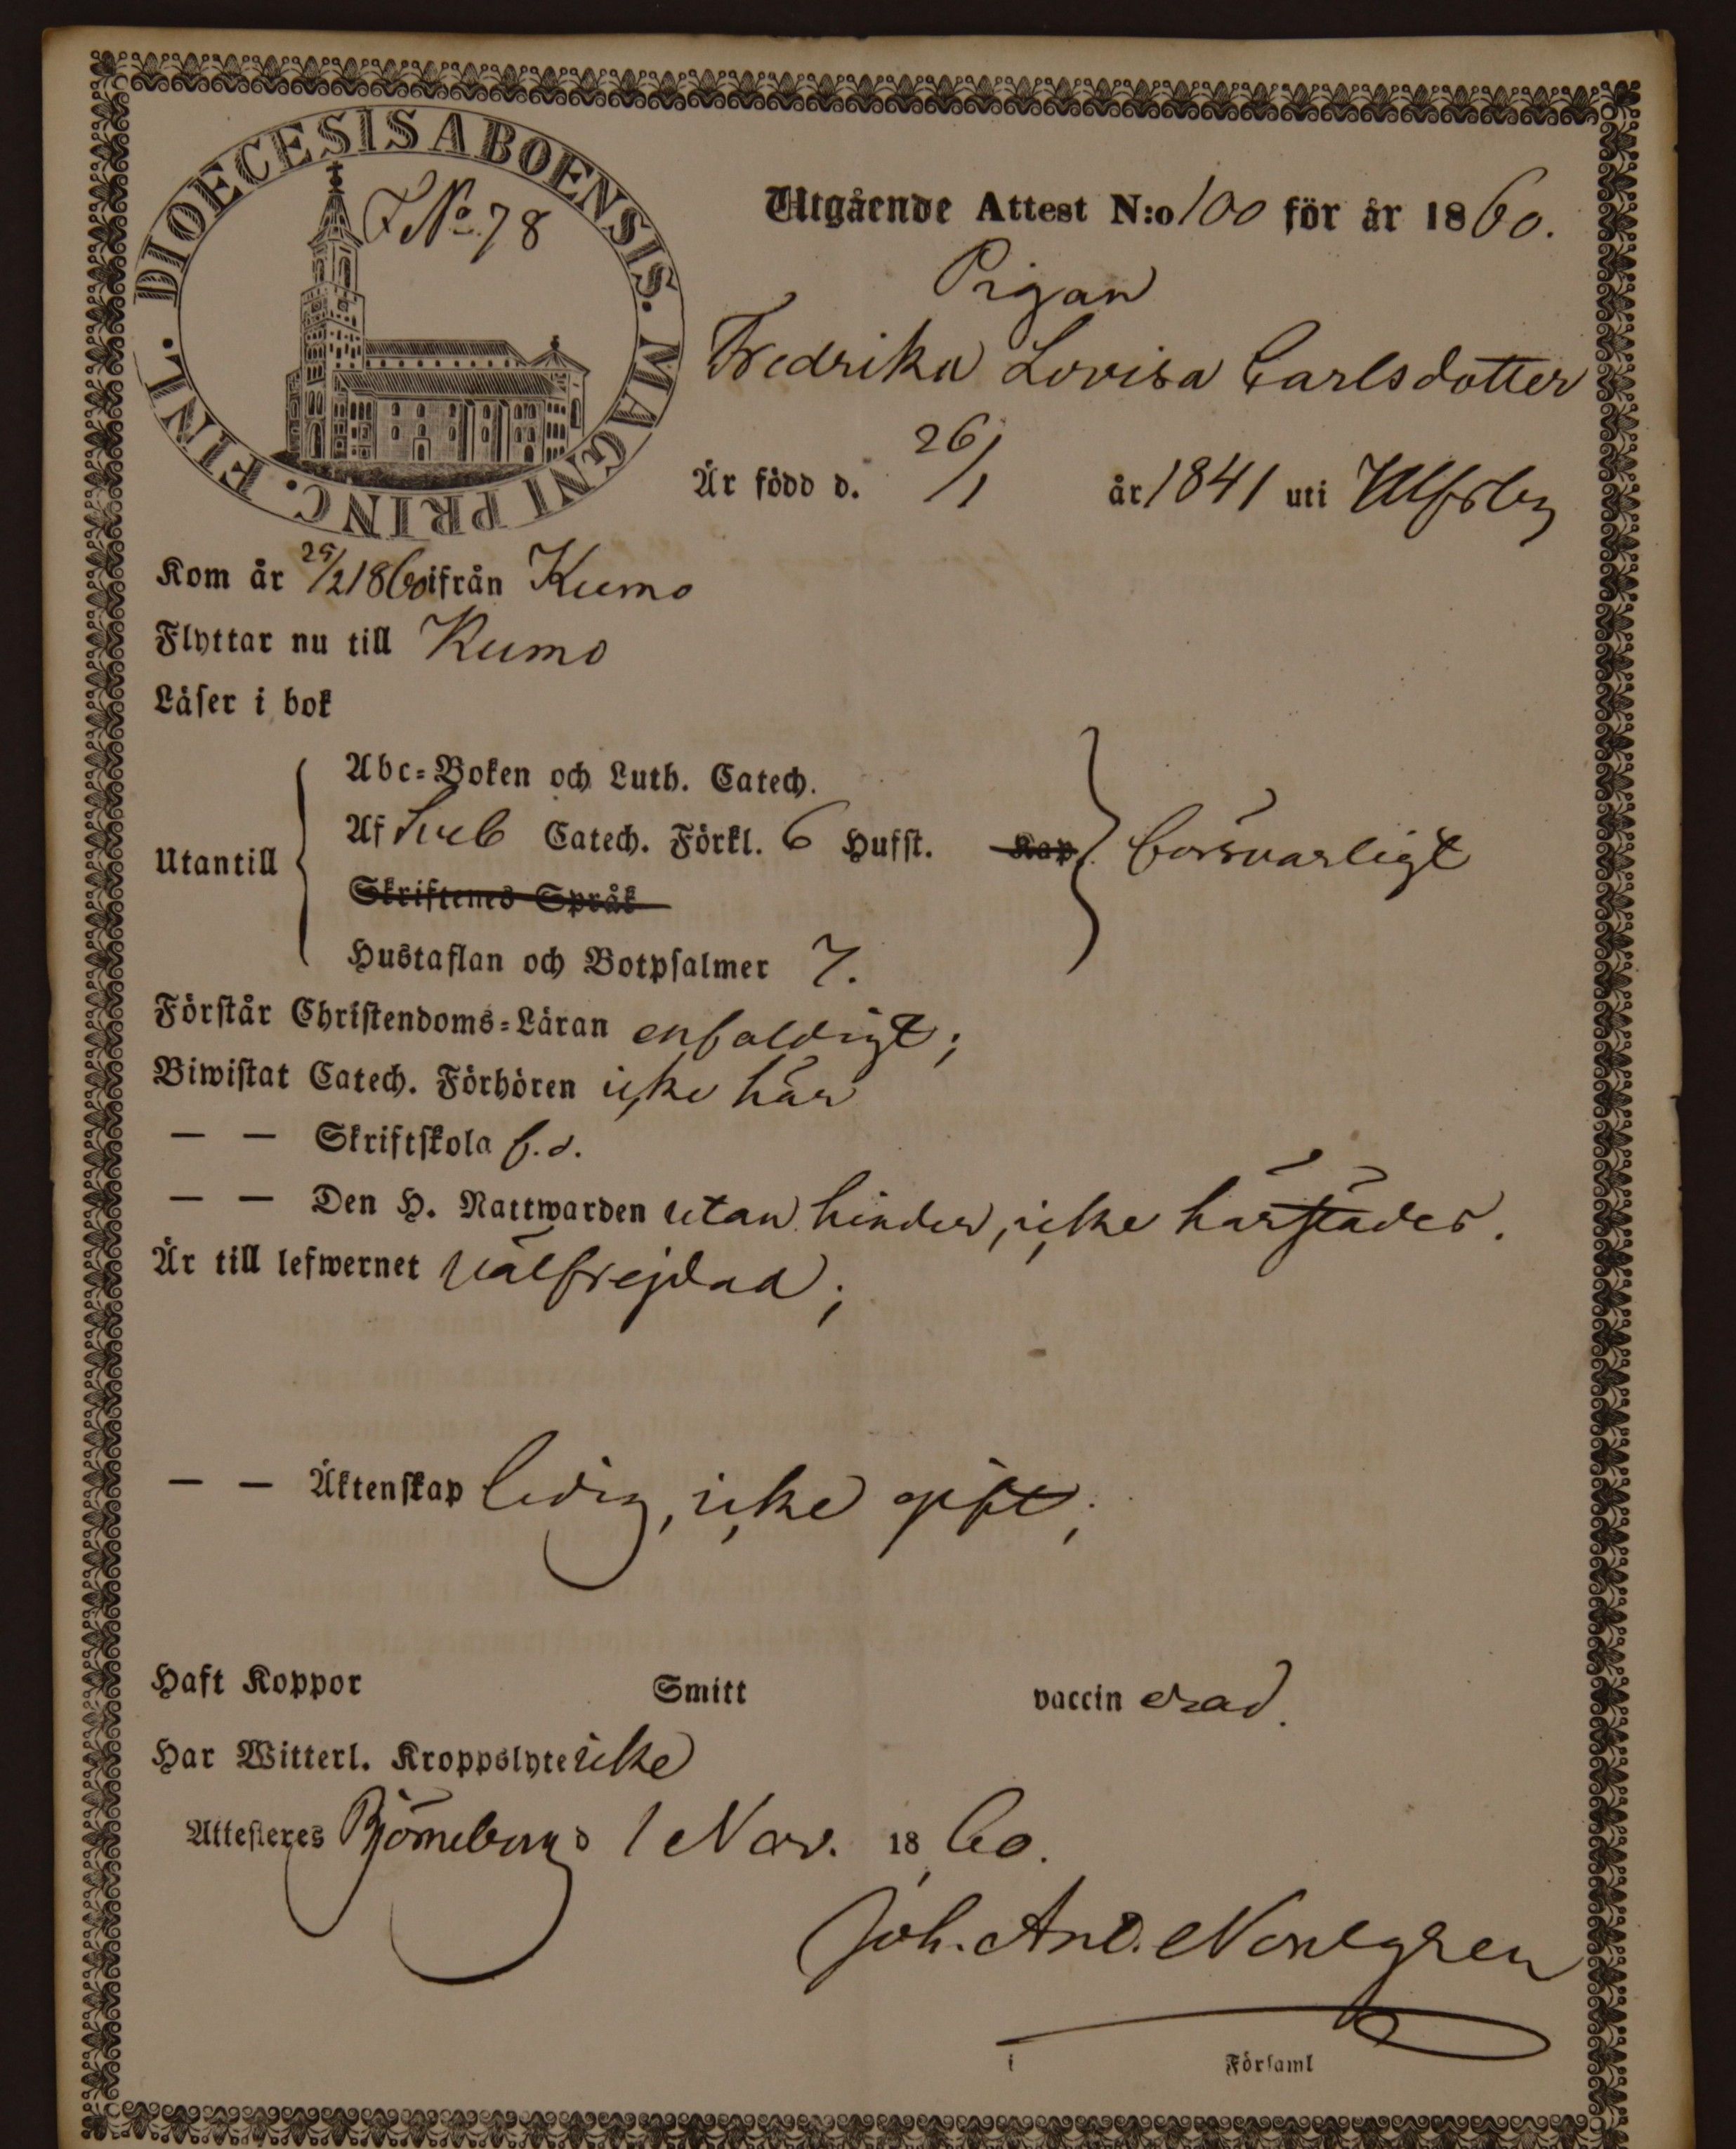 DIOECESIS ABOENSIS. MAGNI PRINC. FINL.
No 78
Utgående Attest N:o 100 för år 1860.
Pigan
Fredrika Lovisa Carlsdotter
Är född d. 26/1 år 1841 uti Ulfsby
Kom år 25/2 1860 ifrån Kumo
Flyttar nu till Kumo
Läser i bok
Abc-Boken och Luth. Catech.
Af Sveb Catech. Förkl. 6 Hufst. Kap. försvarligt
Utantill
Skriftenes Språk
Hustaflan och Botpsalmer 7.
Förstår Christendoms-Läran enfaldigt;
Biwistat Catech. Förhören icke här
— — Skriftskola f.d.
— — Den H. Nattwarden utan hinder, icke härstädes.
Är till lefwernet välfrejdad;
— — Äktenskap ledig, icke gift;
Haft Koppor Smitt vaccin erad.
Har Witterl. Kroppslyte icke
Attesteres Björneborg d 1 Nov. 1860.
Joh. And. Nordgren
i Församl